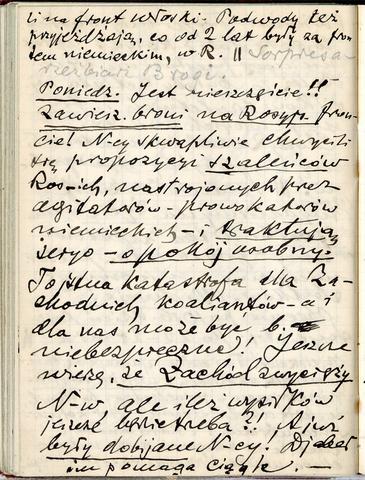 li na front włoski. Podwody też
przyjeżdzają, co od 2 lat były za fron
tem niemieckim, w R. ||
rzeźbiarz
Poniedz. Jest nieszczęście!!
Zawiesz. broni na Rosyjs. fron-
cie! N-cy skwapliwie chwycili
się propozycyi szaleńców
Rosnich, nastrojonych przez
agitatorów-prowokatorów
niemieckich - i traktują
seryo - o pokój osobny.
To istna katastrofa dla Za-
chodnich koaliantów - a i
dla nas może być b.
niebezpieczne! Jeszcze
wierzę, że Zachód zwycięży
N-w, ale ileż wysiłków
jeszcze będzie trzeba?! A już
były dobijane N-cy! Djabeł
im pomaga ciągle. —